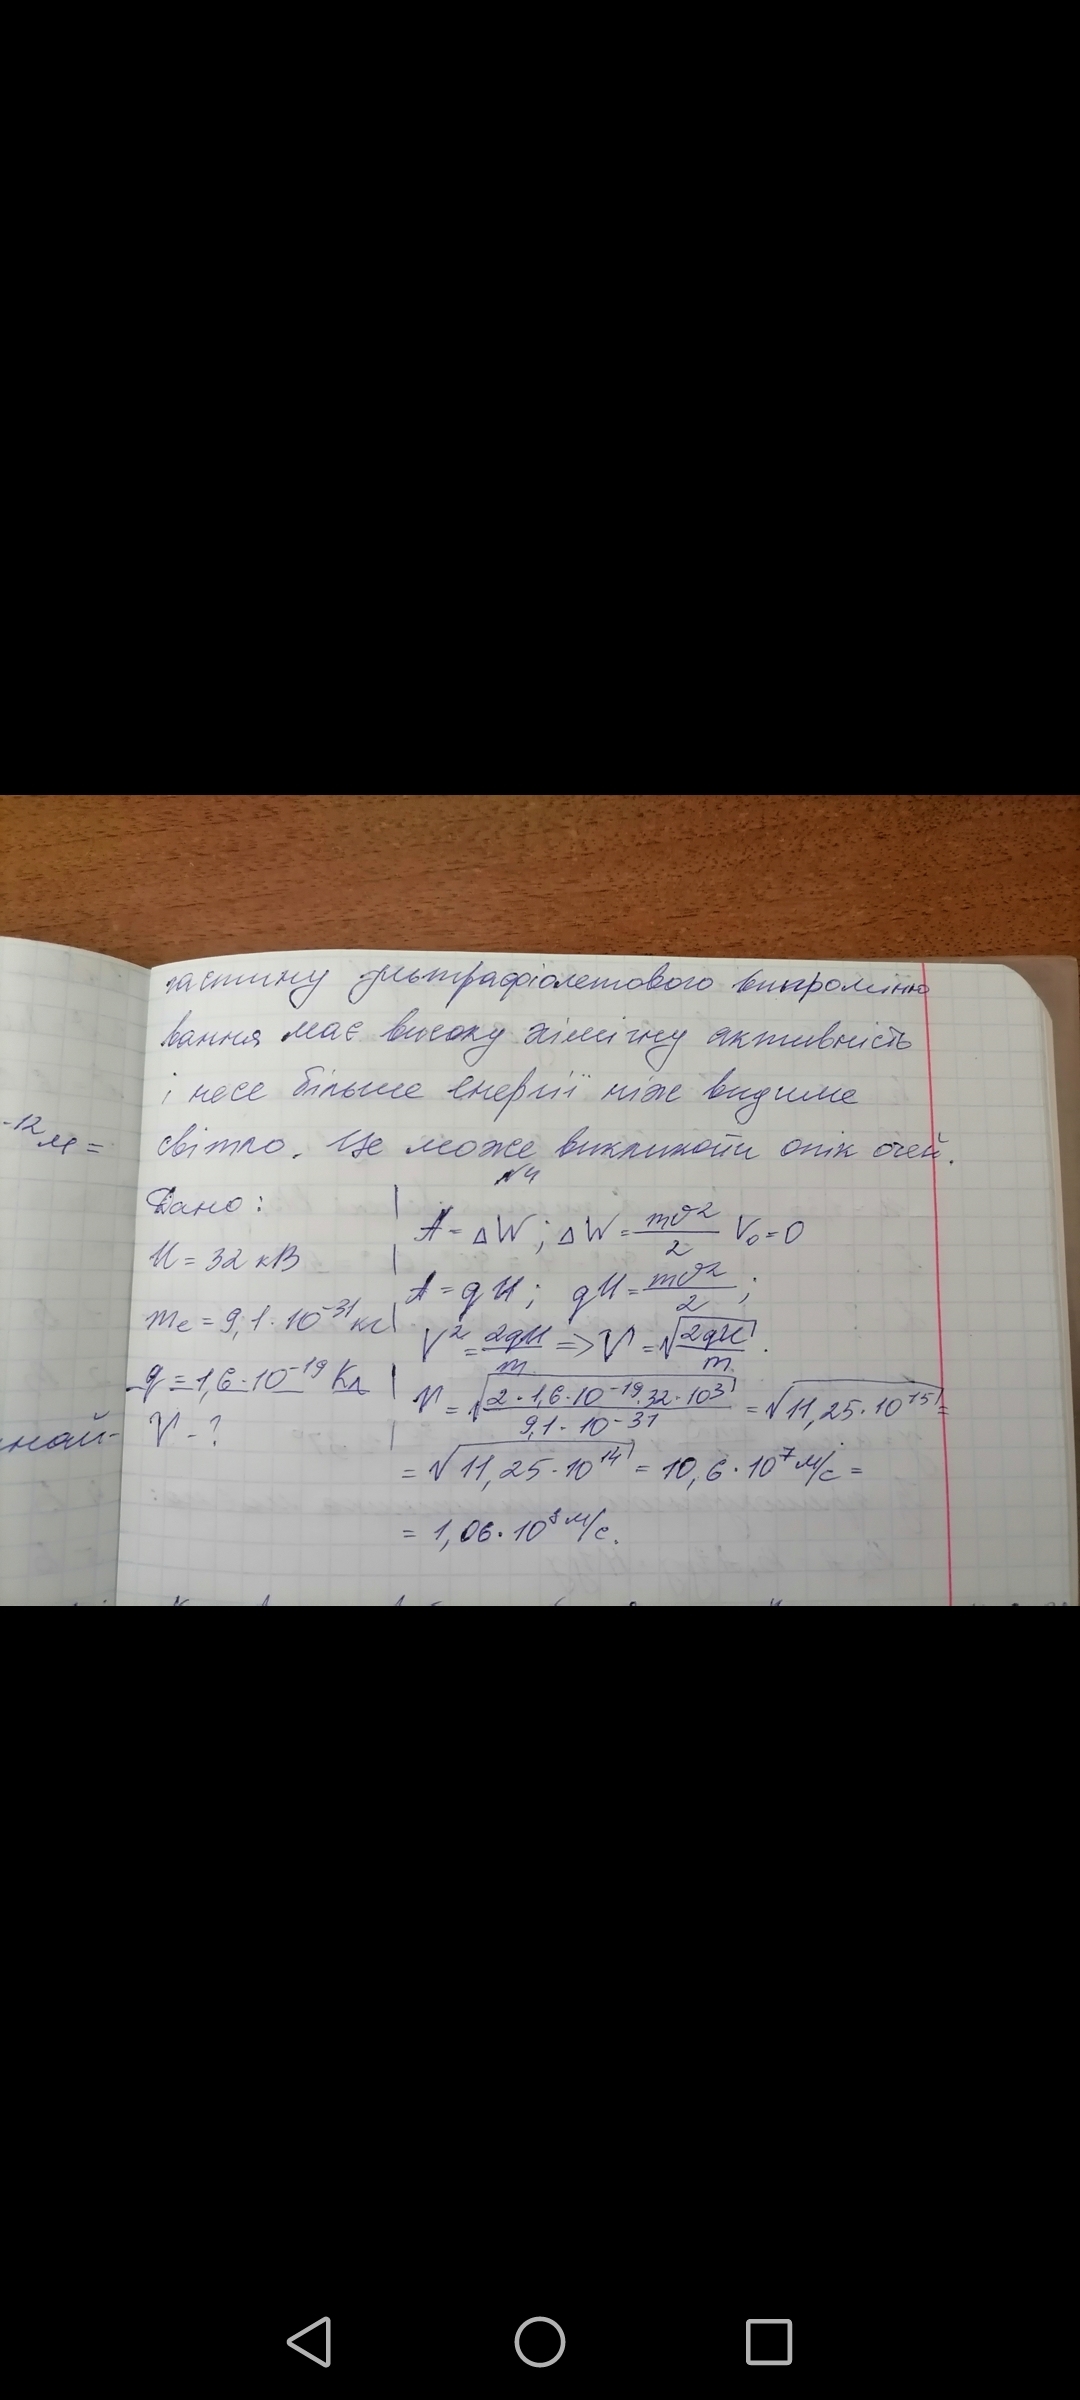 частину ультрафіолетового випроміню
вання має високу хімічну активність
і несе більше енергії ніж видиме
світло. Це може викликати опік очей.
-12 м =
№4
Дано:
U = 32 кВ
mₑ = 9,1 · 10⁻³¹ кг
q = 1,6 · 10⁻¹⁹ Кл
V - ?
най-
A = ΔW ; ΔW = mv²/2 V₀ = 0
A = qU ; qU = mv²/2 ;
V² = 2qU/m => V = √(2qU/m) .
V = √(2 · 1,6 · 10⁻¹⁹ · 32 · 10³ / 9,1 · 10⁻³¹) = √(11,25 · 10¹⁵) =
= √(11,25 · 10¹⁴) = 10,6 · 10⁷ м/с =
= 1,06 · 10⁸ м/с.